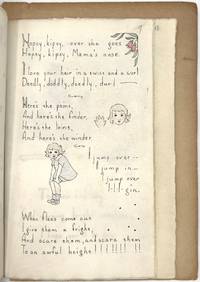 Hopsy, kipsy, over she goes
Hopsy, kipsy, Mama's nose.
I love your hair in a twiss and a curl
Deedly, doddly, deedly, durl
Here's she poins,
And here's she finder,
Here's she loins,
And here's she winder
I jump over--
I jump in--
jump over
I-I-I-gin.
When flees come out
I give them a fright,
And scare them, and scare them
To an awful height! ! ! ! ! ! !